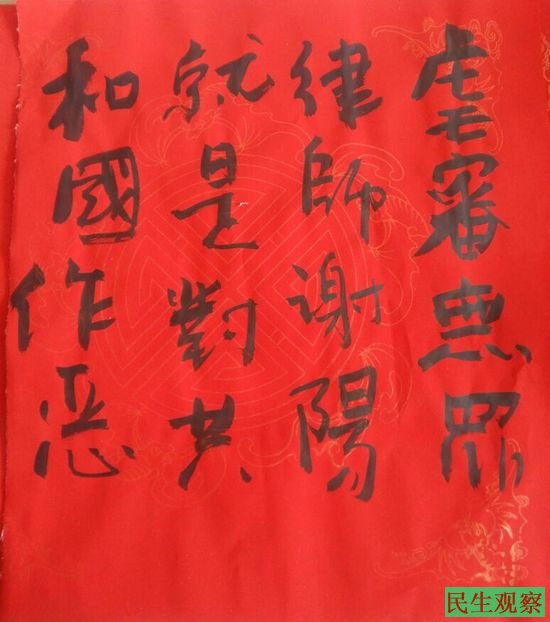 虐審無罪
律師谢陽
就是對共
和國作恶
民生观察